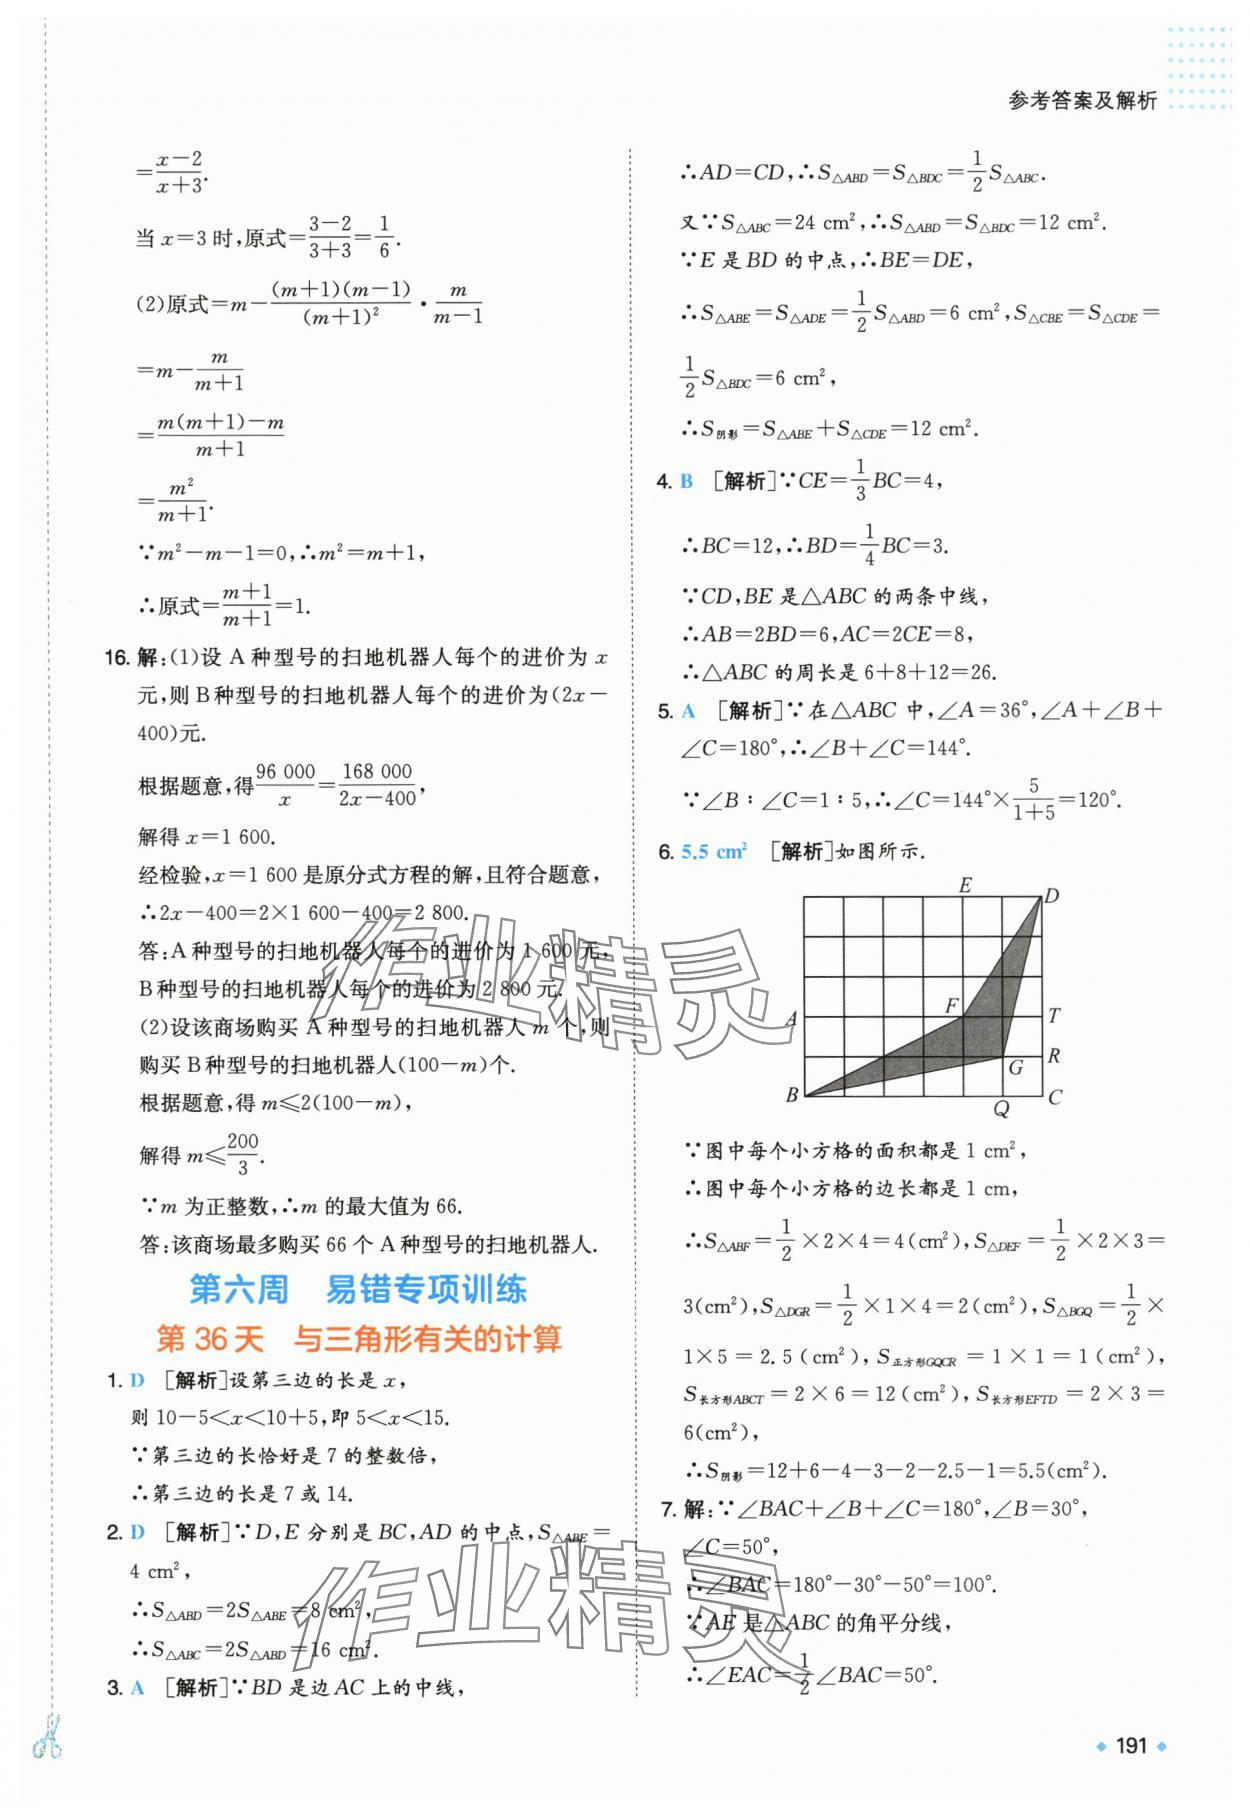 参考答案及解析
=\frac{x-2}{x+3}.
当 x=3 时,原式=\frac{3-2}{3+3}=\frac{1}{6}.
(2)原式=m-\frac{(m+1)(m-1)}{(m+1)^2}·\frac{m}{m-1}
=m-\frac{m}{m+1}
=\frac{m(m+1)-m}{m+1}
=\frac{m^2}{m+1}.
∵m²-m-1=0,∴m²=m+1,
∴原式=\frac{m+1}{m+1}=1.
16. 解:(1)设 A 种型号的扫地机器人每个的进价为 x
元,则 B 种型号的扫地机器人每个的进价为(2x-
400)元.
根据题意,得\frac{96 000}{x}=\frac{168 000}{2x-400},
解得 x=1 600.
经检验,x=1 600 是原分式方程的解,且符合题意,
∴2x-400=2×1 600-400=2 800.
答:A 种型号的扫地机器人每个的进价为 1 600 元,
B 种型号的扫地机器人每个的进价为 2 800 元.
(2)设该商场购买 A 种型号的扫地机器人 m 个,则
购买 B 种型号的扫地机器人(100-m)个.
根据题意,得 m≤2(100-m),
解得 m≤\frac{200}{3}.
∵m 为正整数,∴m 的最大值为 66.
答:该商场最多购买 66 个 A 种型号的扫地机器人.
第六周 易错专项训练
第 36 天 与三角形有关的计算
1. D [解析]设第三边的长是 x,
则 10-5<x<10+5,即 5<x<15.
∵第三边的长恰好是 7 的整数倍,
∴第三边的长是 7 或 14.
2. D [解析]∵D,E 分别是 BC,AD 的中点,S△ABE=
4 cm²,
∴S△ABD=2S△ABE=8 cm²,
∴S△ABC=2S△ABD=16 cm².
3. A [解析]∵BD 是边 AC 上的中线,
∴AD=CD,∴S△ABD=S△BDC=\frac{1}{2}S△ABC.
又∵S△ABC=24 cm²,∴S△ABD=S△BDC=12 cm².
∵E 是 BD 的中点,∴BE=DE,
∴S△ABE=S△ADE=\frac{1}{2}S△ABD=6 cm²,S△CBE=S△CDE=
\frac{1}{2}S△BDC=6 cm²,
∴S阴影=S△ABE+S△CDE=12 cm².
4. B [解析]∵CE=\frac{1}{3}BC=4,
∴BC=12,∴BD=\frac{1}{4}BC=3.
∵CD,BE 是△ABC 的两条中线,
∴AB=2BD=6,AC=2CE=8,
∴△ABC 的周长是 6+8+12=26.
5. A [解析]∵在△ABC 中,∠A=36°,∠A+∠B+
∠C=180°,∴∠B+∠C=144°.
∵∠B∶∠C=1∶5,∴∠C=144°×\frac{5}{1+5}=120°.
6. 5.5 cm² [解析]如图所示.
E D
F
A T
G R
B Q C
∵图中每个小方格的面积都是 1 cm²,
∴图中每个小方格的边长都是 1 cm,
∴S△ABF=\frac{1}{2}×2×4=4(cm²),S△DEF=\frac{1}{2}×2×3=
3(cm²),S△DGR=\frac{1}{2}×1×4=2(cm²),S△BGQ=\frac{1}{2}×
1×5=2.5(cm²),S正方形GQCR=1×1=1(cm²),
S长方形ABCT=2×6=12(cm²),S长方形EFTD=2×3=
6(cm²),
∴S阴影=12+6-4-3-2-2.5-1=5.5(cm²).
7. 解:∵∠BAC+∠B+∠C=180°,∠B=30°,
∠C=50°,
∴∠BAC=180°-30°-50°=100°.
∵AE 是△ABC 的角平分线,
∴∠EAC=\frac{1}{2}∠BAC=50°.
191
作业精灵
作业精灵